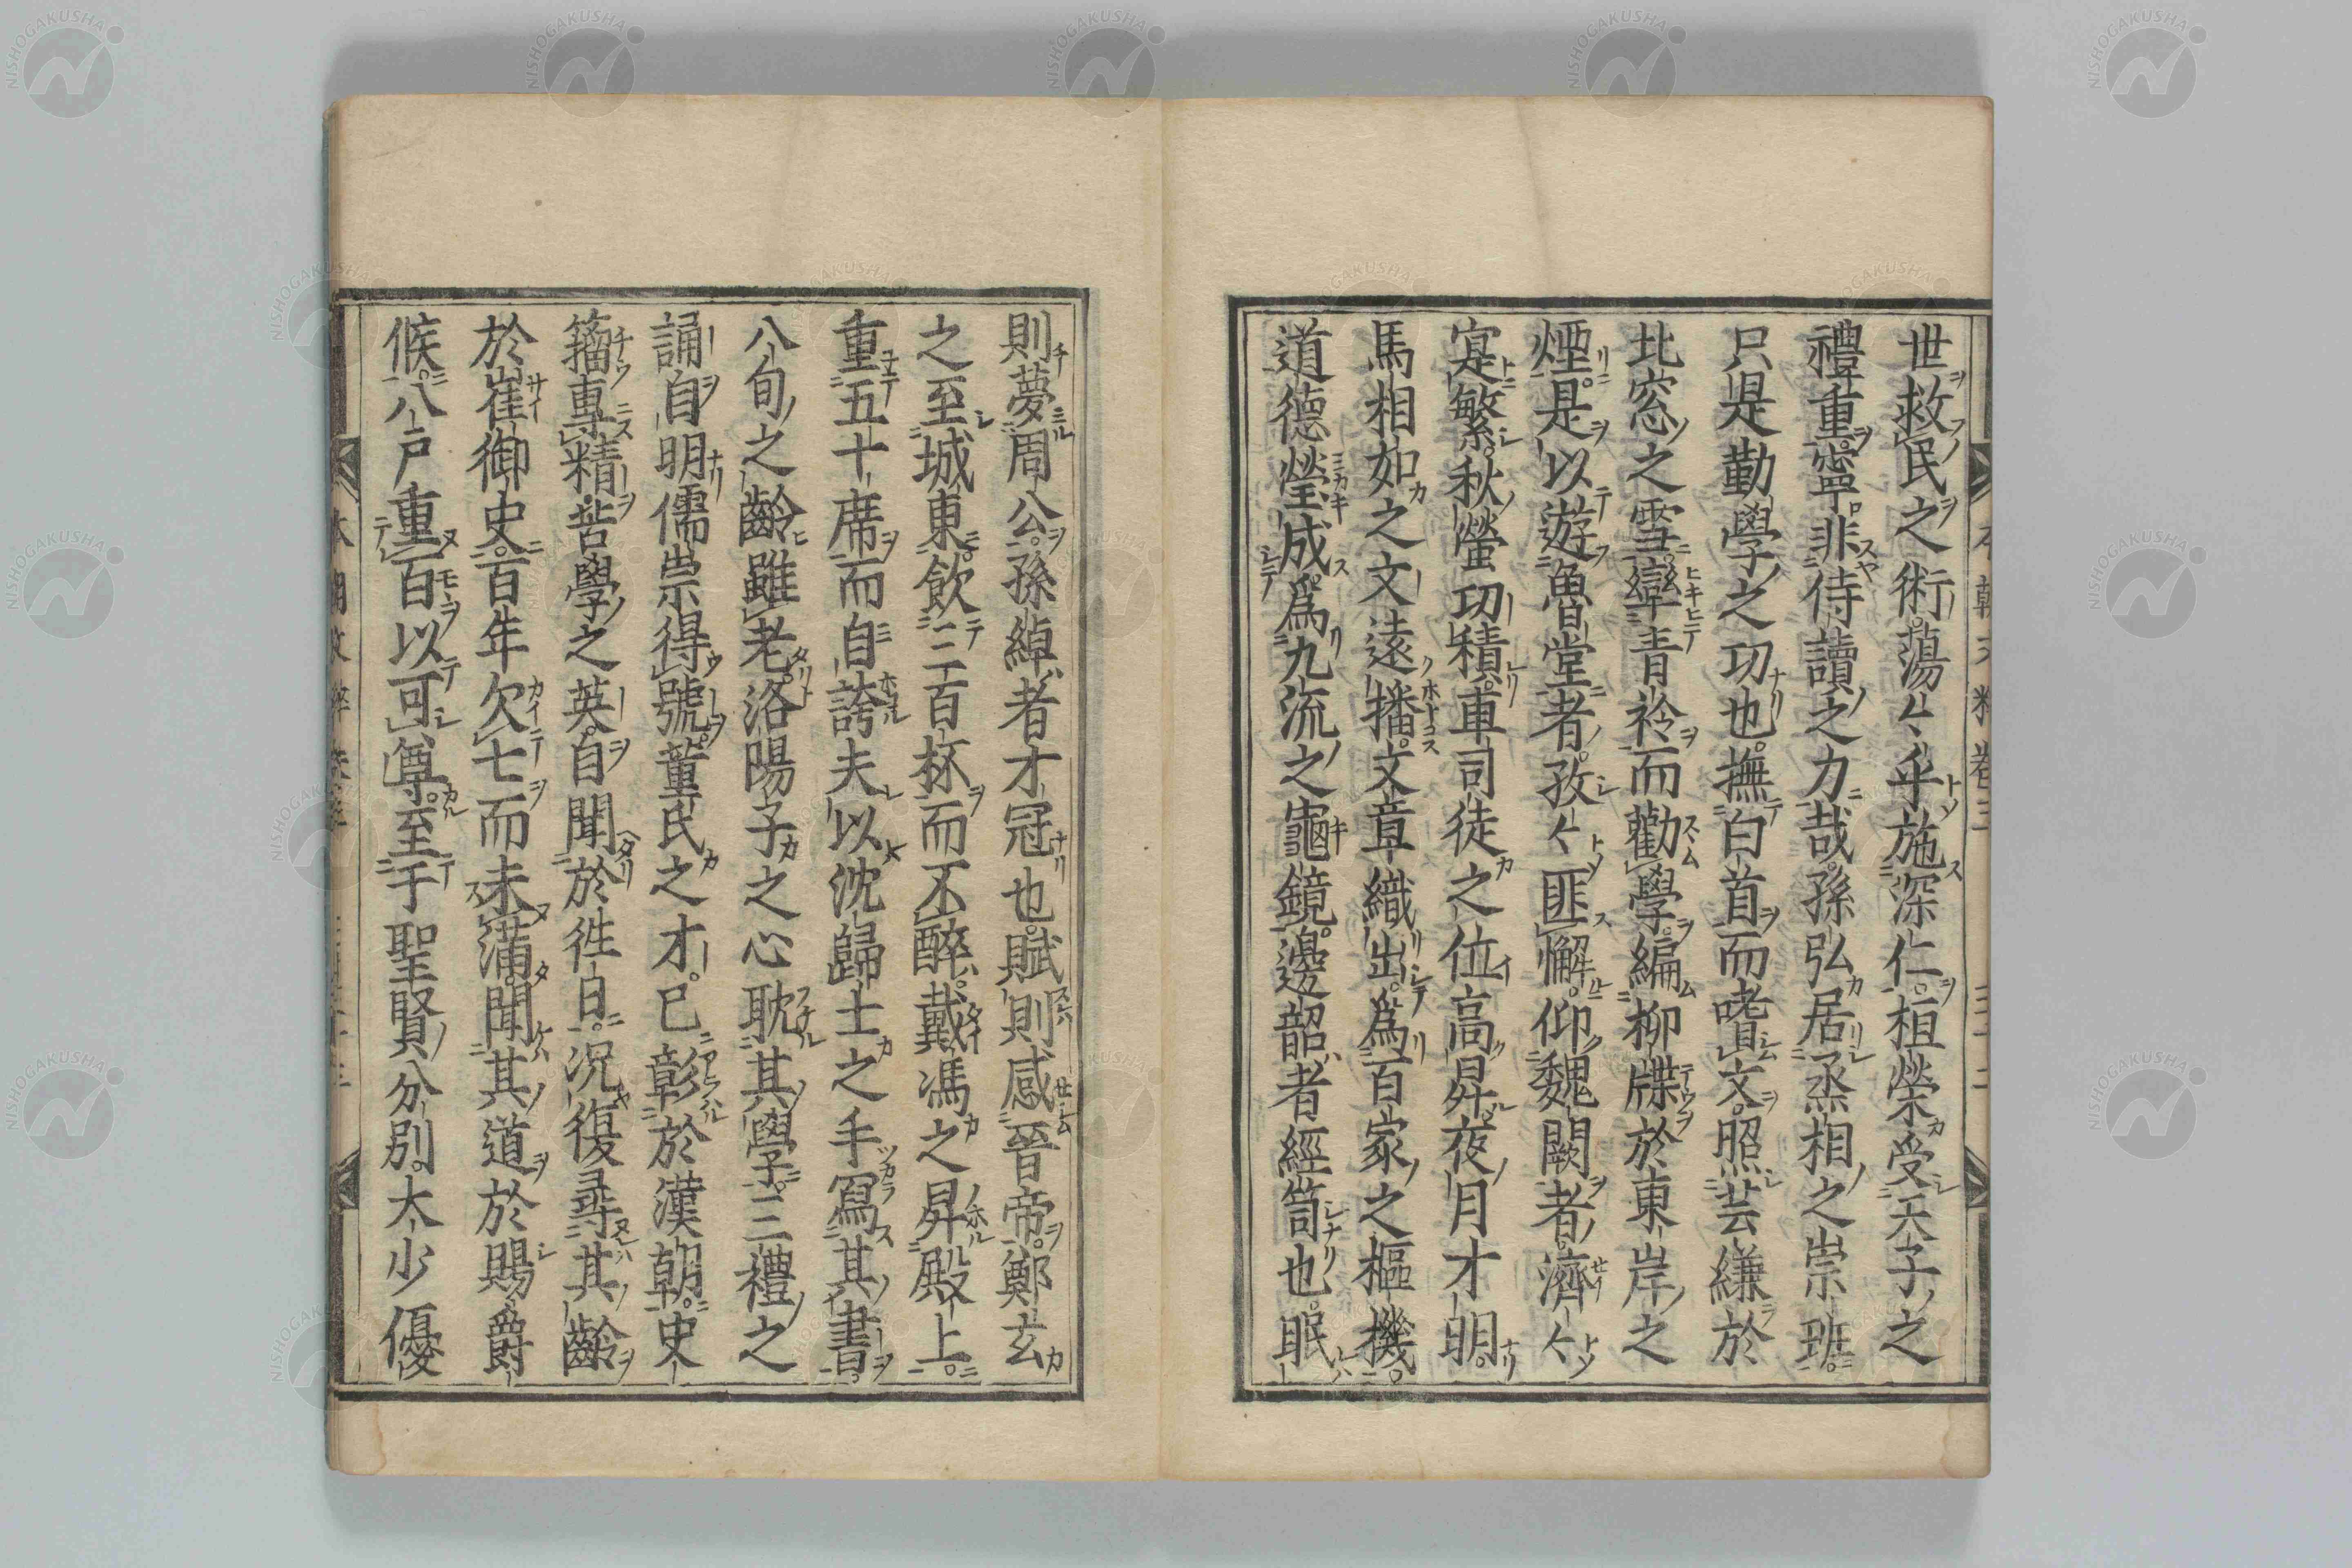 世救民之術蕩〻乎施深仁桓榮受天子之
禮重寧非侍讀之力哉孫弘居丞相之崇班
只是勤學之功也撫白首而嗜文照芸縑於
北窓之雪㝈青衿而勸學編柳牒於東岸之
煙是以遊魯堂者孜〻匪懈仰魏闕者濟〻
寔繁秋螢功積車司徒之位高昇夜月才明
馬相如之文遠播文章織出爲百家之樞機
道德瑩成爲九流之龜鏡邊韶者經笥也眠
則夢周公孫綽者才冠也賦則感晉帝鄭玄
之至城東飲三百杯而不醉戴馮之昇殿上
重五十席而自誇夫以沈歸士之手寫其書
八旬之齡雖老洛陽子之心耽其學三禮之
誦自明儒宗得號董氏之才已彰於漢朝史
籀專精苦學之英自聞於徃日況復尋其齡
於崔御史百年欠七而未滿聞其道於賜爵
候八戸重百以可尊至于聖賢分別太少優